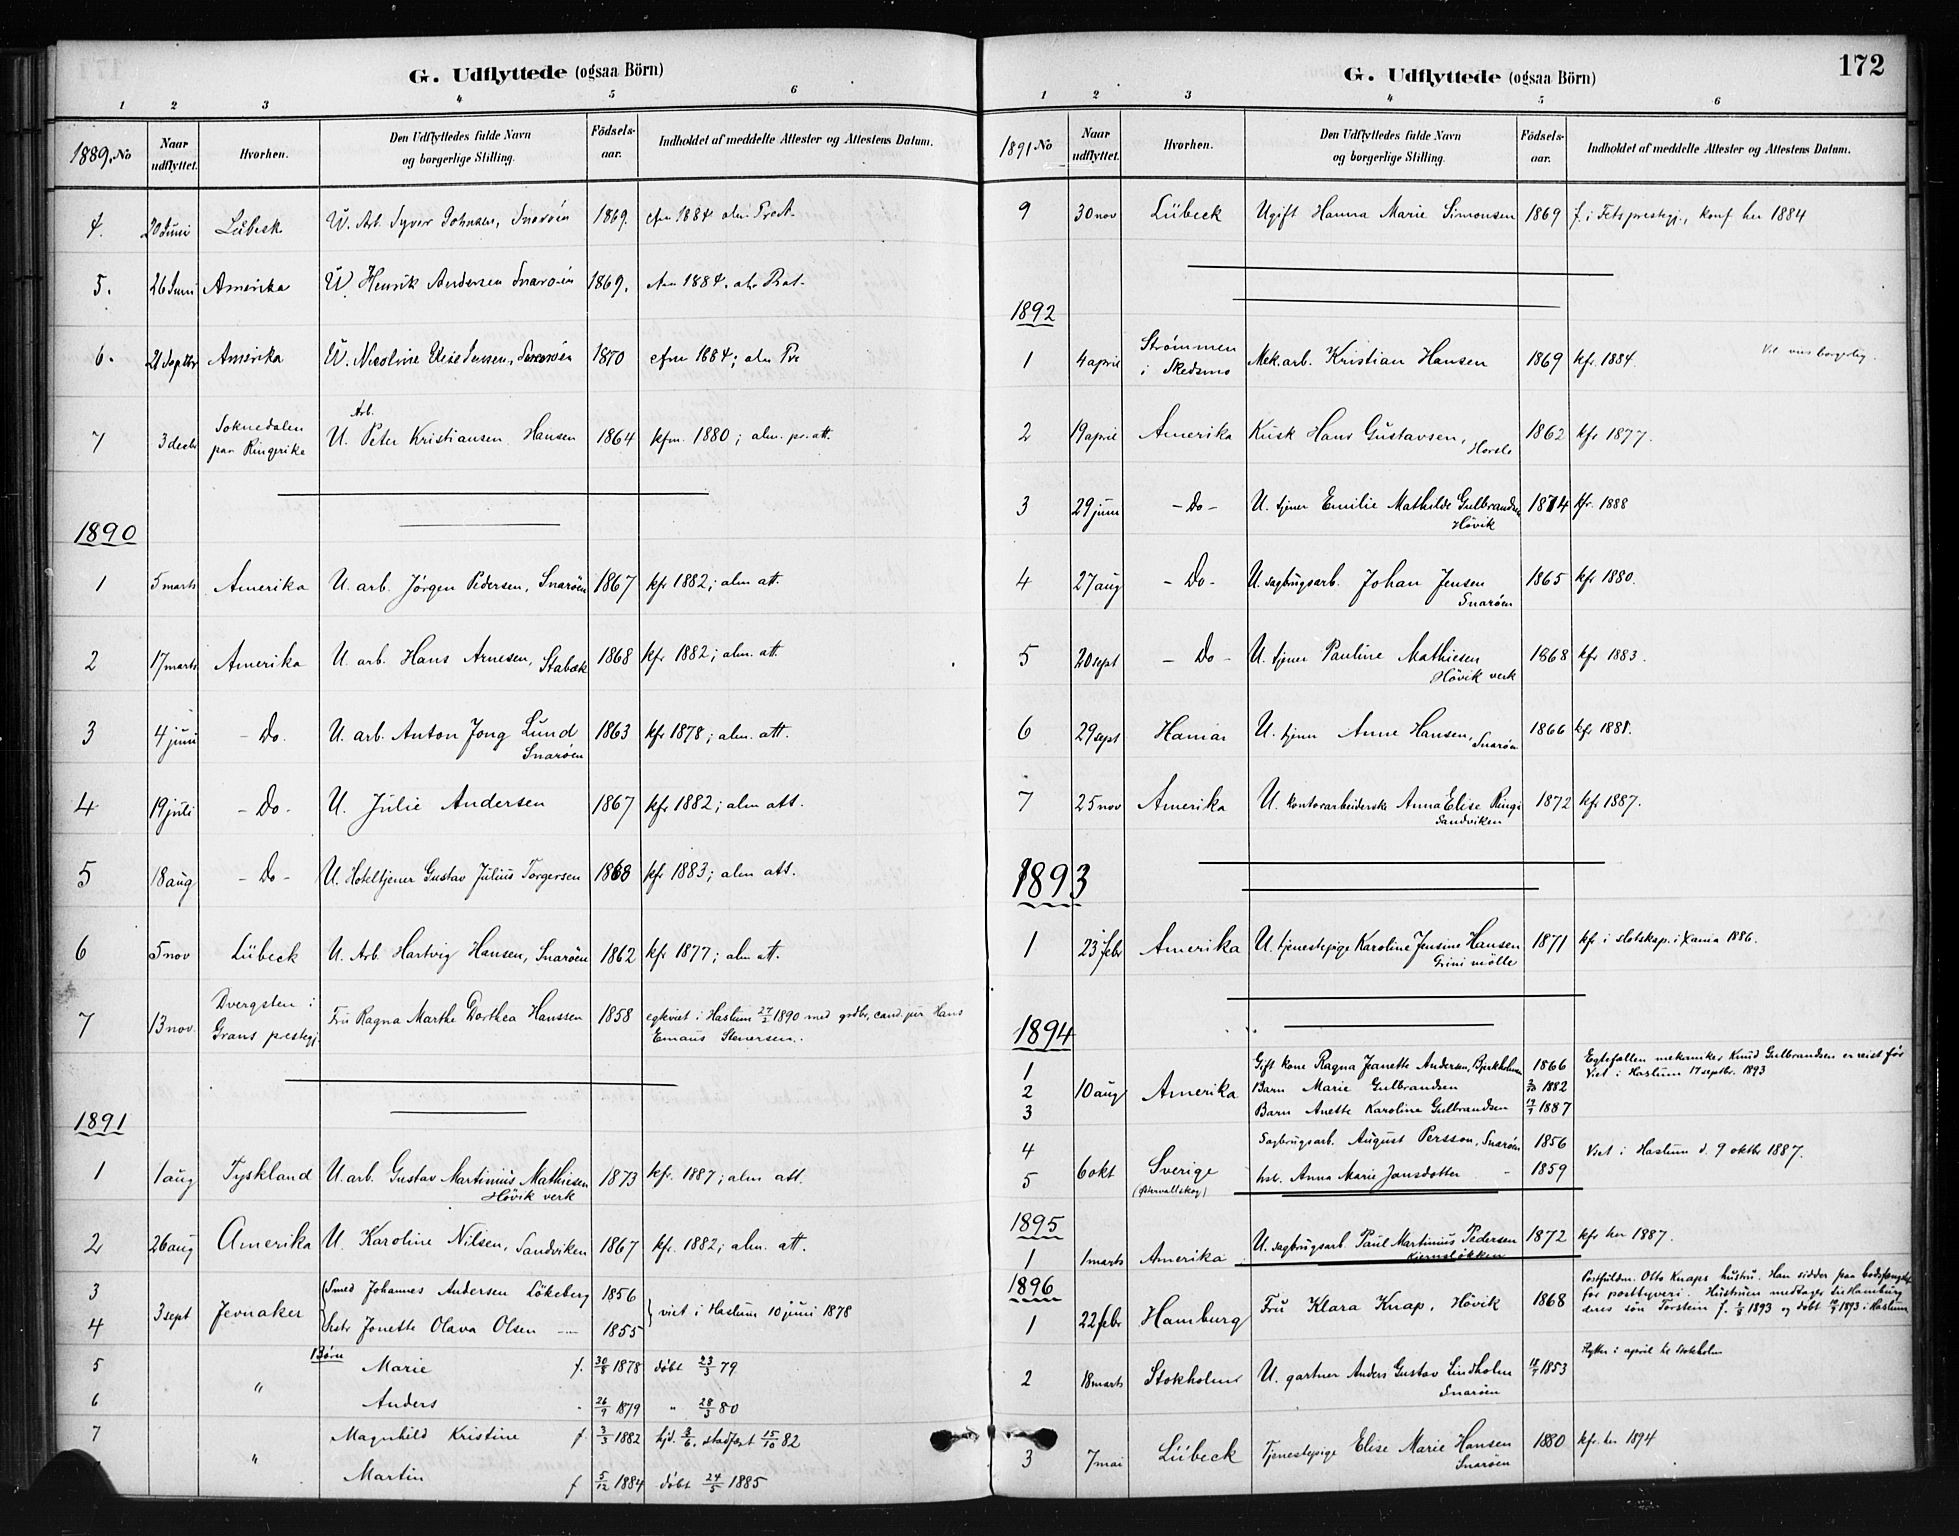 G. Udflyttede (ogsaa Börn)
1 2 3 4 5 6
1889. No Naar udflyttet. Hvorhen. Den Udflyttedes fulde Navn og borgerlige Stilling. Födsels-aar. Indholdet af meddelte Attester og Attestens Datum.
4. 20 Juni Lübeck U. Arb. Syver Johnsen, Snaröen 1869. cfm 1884 alm. Pr. Att.
5. 26 Juni Amerika U. Henrik Andersen Snaröen 1869. cfm 1884. alm
6. 21 Septbr Amerika U. Nicoline Elise Jensen, Snaröen 1870 cfm 1884; alm
7 3 decbr Soknedalen paa Ringerike U. Arb. Peter Kristiansen Hansen 1864 kfm. 1880; alm. pr. att.
1890
1 5 marts Amerika U. arb. Jörgen Pedersen, Snaröen 1867 kfr 1882; alm att.
2 17 marts Amerika U. arb. Hans Arnesen, Stabæk 1868 kfr 1882; alm. att.
3 4 juni - Do. U. arb. Anton Jong Lund Snaröen 1863 kfr 1878; alm. att.
4 19 juli - Do - U. Julie Andersen 1867 kfr 1882; alm att.
5 18 aug - Do - U. Hoteltjener Gustav Julius Torgersen 1868 kfr 1883; alm att.
6 5 nov Lübeck U. Arb. Hartvig Hansen, Snaröen 1862 kfr 1877; alm att.
7 13 nov. Dvergsten i Grans prestegj. Fru Ragna Marthe Dorthea Hanssen 1858 egteviet i Haslum 27/2 1890 med grdbr, cand. jur Hans
Emaus Stenersen.
1891
1 1 aug Tyskland U. arb. Gustav Martinius Mathiesen 1873 kfr. 1887; alm att.
Hövik verk
2 26 aug Amerika U. Karoline Nilsen, Sandviken 1867 kfr. 1882; alm. att.
3 Smed Johannes Andersen Lökeberg 1856
3 sept Jevnaker } viet i Haslum 10 juni 1878
4 hstr Jonette Olava Olsen — 1855
5 Börn Marie f. 30/8 1878 döbt 23/3 79
6 " Anders - 26/9 1879 " 28/3 80
7 Magnhild Kristine f 3/3 1882 hjd. 3/6, stadfæst 15/10 82
" Martin f 5/12 1884 döbt 24/5 1885
G. Udflyttede (ogsaa Börn) 172
1 2 3 4 5 6
1891 No Naar udflyttet. Hvorhen. Den Udflyttedes fulde Navn og borgerlige Stilling. Födsels-aar. Indholdet af meddelte Attester og Attestens Datum.
9 30 nov Lübeck Ugift Hanna Marie Simonsen 1869 f. i Fets prestegj., konf her 1884
1892
1 4 april Strømmen i Skedsmo Mek. arb. Kristian Hansen 1869 kfr. 1884.
2 19 april Amerika Kusk Hans Gustavsen, 1862 kfr 1877.
Horsle
3 29 juni - Do - U. tjener Emilie Mathilde Gulbrandsen 1874 kfr. 1888
Hövik
4 27 aug - Do - U. sagbrugsarb. Johan Jensen 1865 kfr 1880.
Snaröen
5 20 sept - Do - U. tjener Pauline Mathiesen 1868 kfr 1883.
Hövik verk
6 29 sept Hamar U. tjener Anne Hansen, Snaröen 1866 kfr 1881.
7 25 nov Amerika U. kontorarbeiderske Anna Elise Ringi 1872 kfr 1887.
Sandviken
1893
1 23 febr Amerika U. tjenestepige Karoline Jensine Hansen 1871 kfr i slotskap. i Xania 1886.
Grini mölle
1894
1 Gift kone Ragna Jeanette Andersen, Bjerkholmen 1866 Egtefællen mekaniker Knud Gulbrandsen er reist før
2 10 aug Amerika Barn Marie Gulbrandsen 1882 Viet i Haslum 17 septbr. 1893
3 Barn Anette Karoline Gulbrandsen 1887
4 Sagbrugsarb. August Persson, Snaröen 1856 Viet i Haslum d. 9 oktbr 1887.
5 6 okt Sverige hstr. Anna Marie Jansdotter - 1859
1895
1 1 marts Amerika U. sagbrugsarb. Paul Martinius Pedersen 1872 kfr her 1887.
Kjernsløkken
1896
1 22 febr Hamburg Fru Klara Knap, Hövik 1868 Postfuldm. Otto Knaps hustru. Han sidder paa bodsfængslet
for posttyveri. Hustruen medtager til Hamburg
sens sön Torstein f. 3/8 1893 og døbt 1893 i Haslum
2 18 marts Stokholm U. gartner Anders Gustav Lindholm 1853 Flytter i april til Stokholm
Snaröen
3 7 mai Lübeck Tjenestepige Elise Marie Hansen 1880 kfr. her 1894
Snaröen